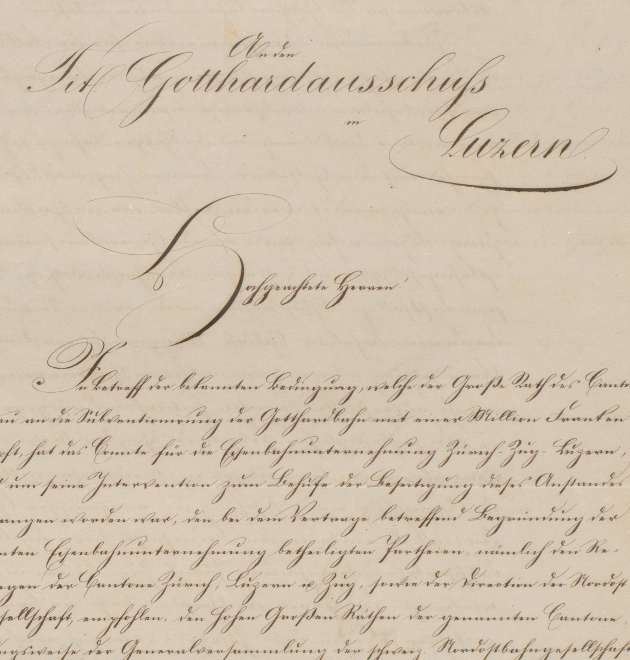 An den
Tit. Gotthardausschuß
in
Luzern
Hochgeachtete Herren!
In Betreff der bekannten Bedingung, welche der Große Rath des Canto
au an die Subventionirung der Gotthardbahn mit einer Million Franken
pft, hat das Comite für die Eisenbahnunternehmung Zürich-Zug-Luzern,
um seine Intervention zum Behufe der Beseitigung dieses Anstandes
angen worden war, den bei dem Vertrage betreffend Begründung der
nten Eisenbahnunternehmung betheiligten Partheien, nämlich den Re-
gen der Cantone Zürich, Luzern & Zug, sowie der Direction der Nordost
sellschaft, empfohlen, den hohen Großen Räthen der genannten Cantone,
ngsweise der Generalversammlung der schweiz. Nordostbahngesellschaft